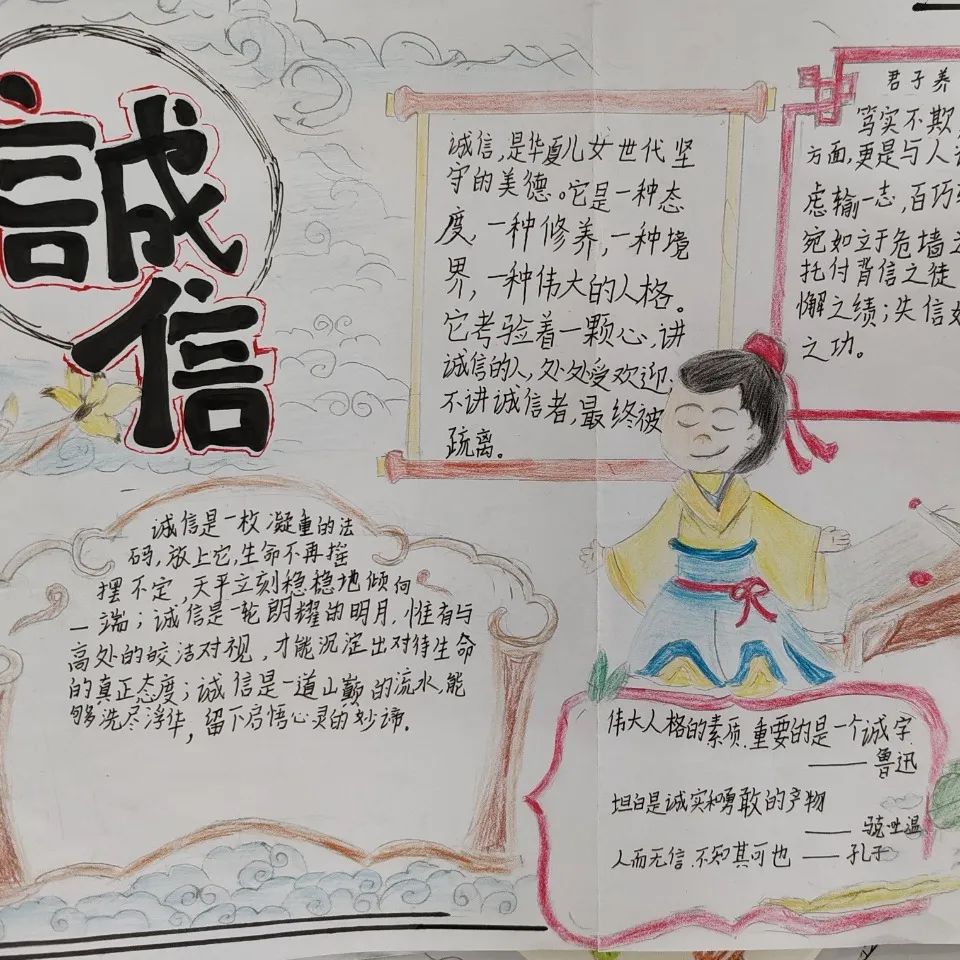 誠
信
诚信,是华夏儿女世代坚
守的美德。它是一种态
度,一种修养,一种境
界,一种伟大的人格。
它考验着一颗心,讲
诚信的人,处处受欢迎;
不讲诚信者,最终被
疏离。
君子养
笃实不欺,
方面,更是与人
虑输一志,百巧
宛如立于危墙之
托付背信之徒
懈之绩;失信如
之功。
诚信是一枚凝重的法
码,放上它,生命不再摇
摆不定,天平立刻稳稳地倾向
一端;诚信是一轮朗耀的明月,惟有与
高处的皎洁对视,才能沉淀出对待生命
的真正态度;诚信是一道山巅的流水,能
够洗尽浮华,留下启悟心灵的妙谛.
伟大人格的素质,重要的是一个诚字
——鲁迅
坦白是诚实和勇敢的产物
——马克·吐温
人而无信 不知其可也——孔子